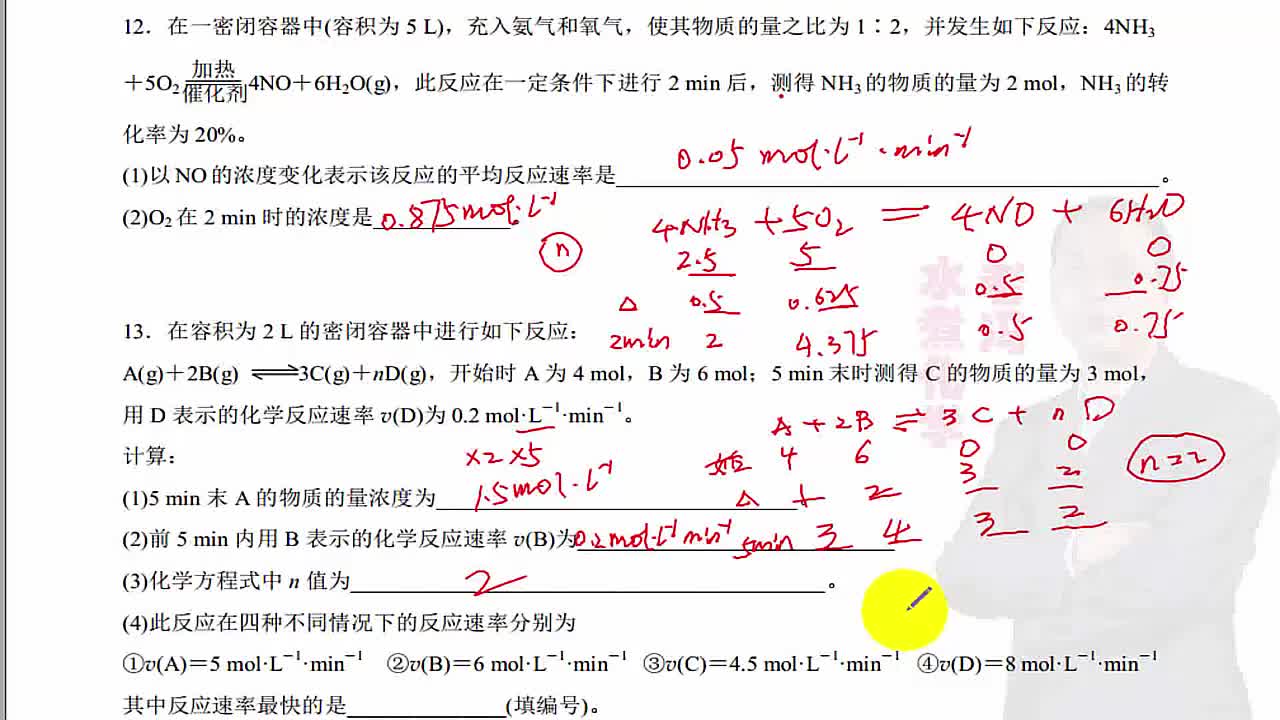 12．在一密闭容器中(容积为 5 L)，充入氨气和氧气，使其物质的量之比为 1∶2，并发生如下反应：4NH₃
＋5O₂ 加热 催化剂 4NO＋6H₂O(g)，此反应在一定条件下进行 2 min 后，测得 NH₃ 的物质的量为 2 mol，NH₃ 的转
化率为 20%。
0.05 mol·L⁻¹·min⁻¹
(1)以 NO 的浓度变化表示该反应的平均反应速率是____________。
(2)O₂ 在 2 min 时的浓度是 0.875mol·L⁻¹
4NH₃ + 5O₂ = 4NO + 6H₂O
n 2.5 5 0 0
Δ 0.5 0.625 0.5 0.75
2min 2 4.375 0.5 0.75
13．在容积为 2 L 的密闭容器中进行如下反应：
A(g)＋2B(g) ⇌ 3C(g)＋nD(g)，开始时 A 为 4 mol，B 为 6 mol；5 min 末时测得 C 的物质的量为 3 mol，
用 D 表示的化学反应速率 v(D)为 0.2 mol·L⁻¹·min⁻¹。
A + 2B ⇌ 3C + nD
计算：
×2×5
始 4 6 0 0
n=2
Δ 1 2 3 2
(1)5 min 末 A 的物质的量浓度为 1.5mol·L⁻¹
(2)前 5 min 内用 B 表示的化学反应速率 v(B)为 0.2mol·L⁻¹min⁻¹
5min 3 4 3 2
(3)化学方程式中 n 值为 2 。
(4)此反应在四种不同情况下的反应速率分别为
①v(A)＝5 mol·L⁻¹·min⁻¹ ②v(B)＝6 mol·L⁻¹·min⁻¹ ③v(C)＝4.5 mol·L⁻¹·min⁻¹ ④v(D)＝8 mol·L⁻¹·min⁻¹
其中反应速率最快的是____________(填编号)。